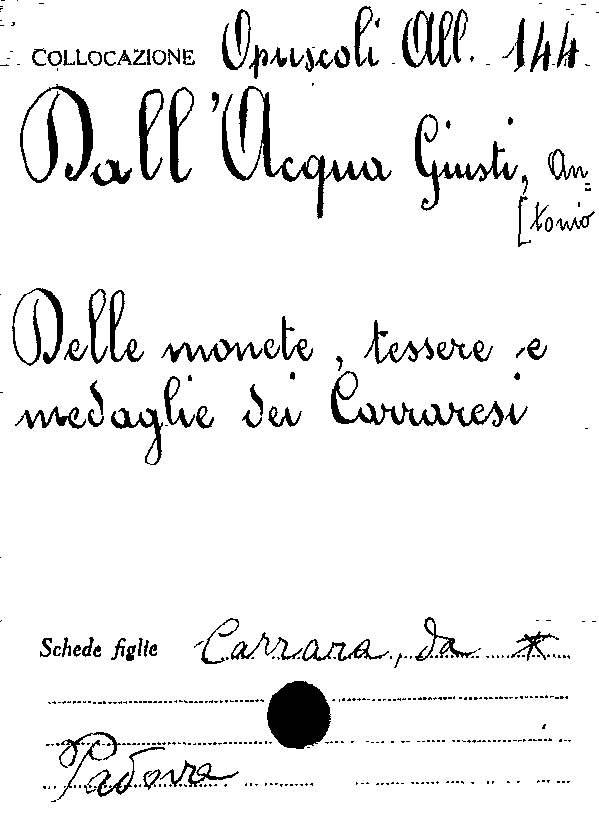 COLLOCAZIONE Opuscoli All. 144
Dall'Acqua Giusti, An=
[tonio
Delle monete, tessere e
medaglie dei Carraresi
Schede figlie Carrara, da *
Padova